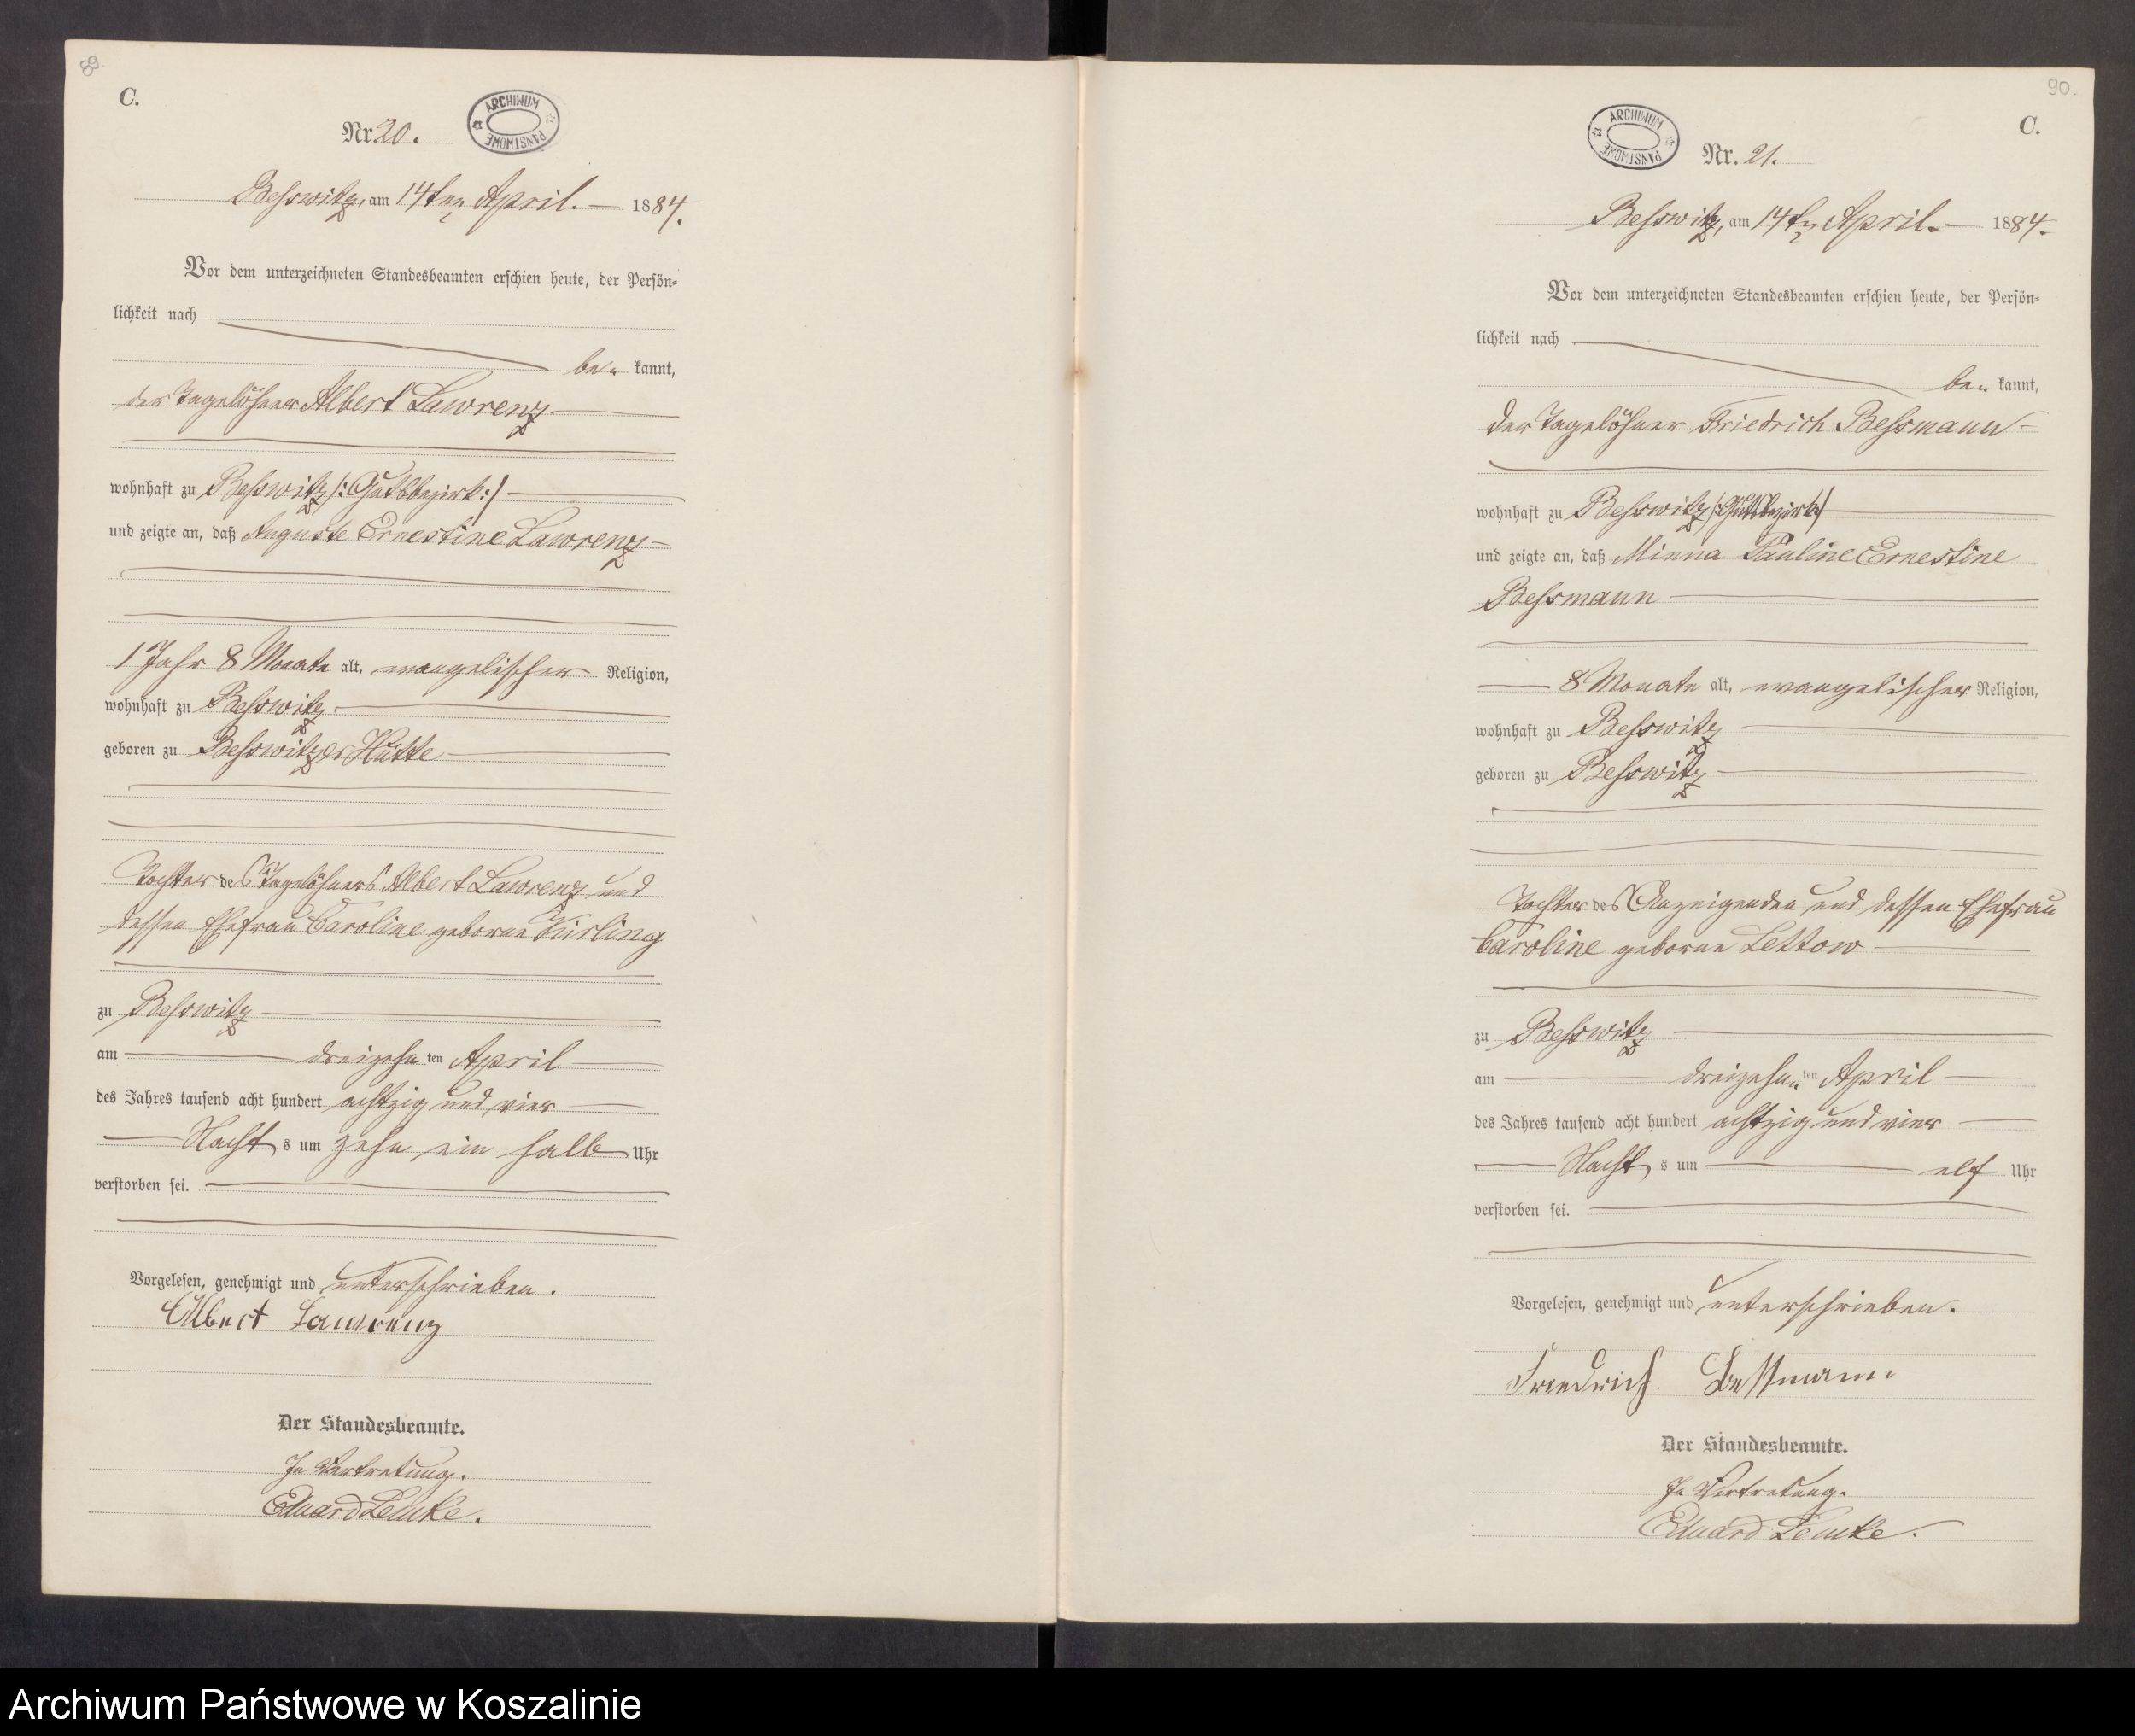 89.
C.
ARCHIWUM PAŃSTWOWE
Nr. 20.
Besswitz, am 14ten April. 1884.
Vor dem unterzeichneten Standesbeamten erschien heute, der Persön-
lichkeit nach
be- kannt,
der Tagelöhner Albert Lawrenz
wohnhaft zu Besswitz /: Gutsbezirk :/
und zeigte an, daß Auguste Ernestine Lawrenz
1 Jahr 8 Monate alt, evangelischer Religion,
wohnhaft zu Besswitz
geboren zu Besswitzer Hütte
Tochter des Tagelöhners Albert Lawrenz und
dessen Ehefrau Caroline geborne Kirling
zu Besswitz
am dreizehn ten April
des Jahres tausend acht hundert achtzig und vier
Nacht s um zehn ein halb Uhr
verstorben sei.
Vorgelesen, genehmigt und unterschrieben.
Albert Lawrenz
Der Standesbeamte.
In Vertretung.
Eduard Lemke.
90.
C.
ARCHIWUM PAŃSTWOWE
Nr. 21.
Besswitz, am 14ten April. 1884.
Vor dem unterzeichneten Standesbeamten erschien heute, der Persön-
lichkeit nach
be- kannt,
der Tagelöhner Friedrich Bessmann
wohnhaft zu Besswitz /: Gutsbezirk :/
und zeigte an, daß Minna Pauline Ernestine
Bessmann
8 Monate alt, evangelischer Religion,
wohnhaft zu Besswitz
geboren zu Besswitz
Tochter des Anzeigenden und dessen Ehefrau
Caroline geborne Lettow
zu Besswitz
am dreizehn ten April
des Jahres tausend acht hundert achtzig und vier
Nacht s um elf Uhr
verstorben sei.
Vorgelesen, genehmigt und unterschrieben.
Friedrich Bessmann
Der Standesbeamte.
In Vertretung.
Eduard Lemke.
Archiwum Państwowe w Koszalinie